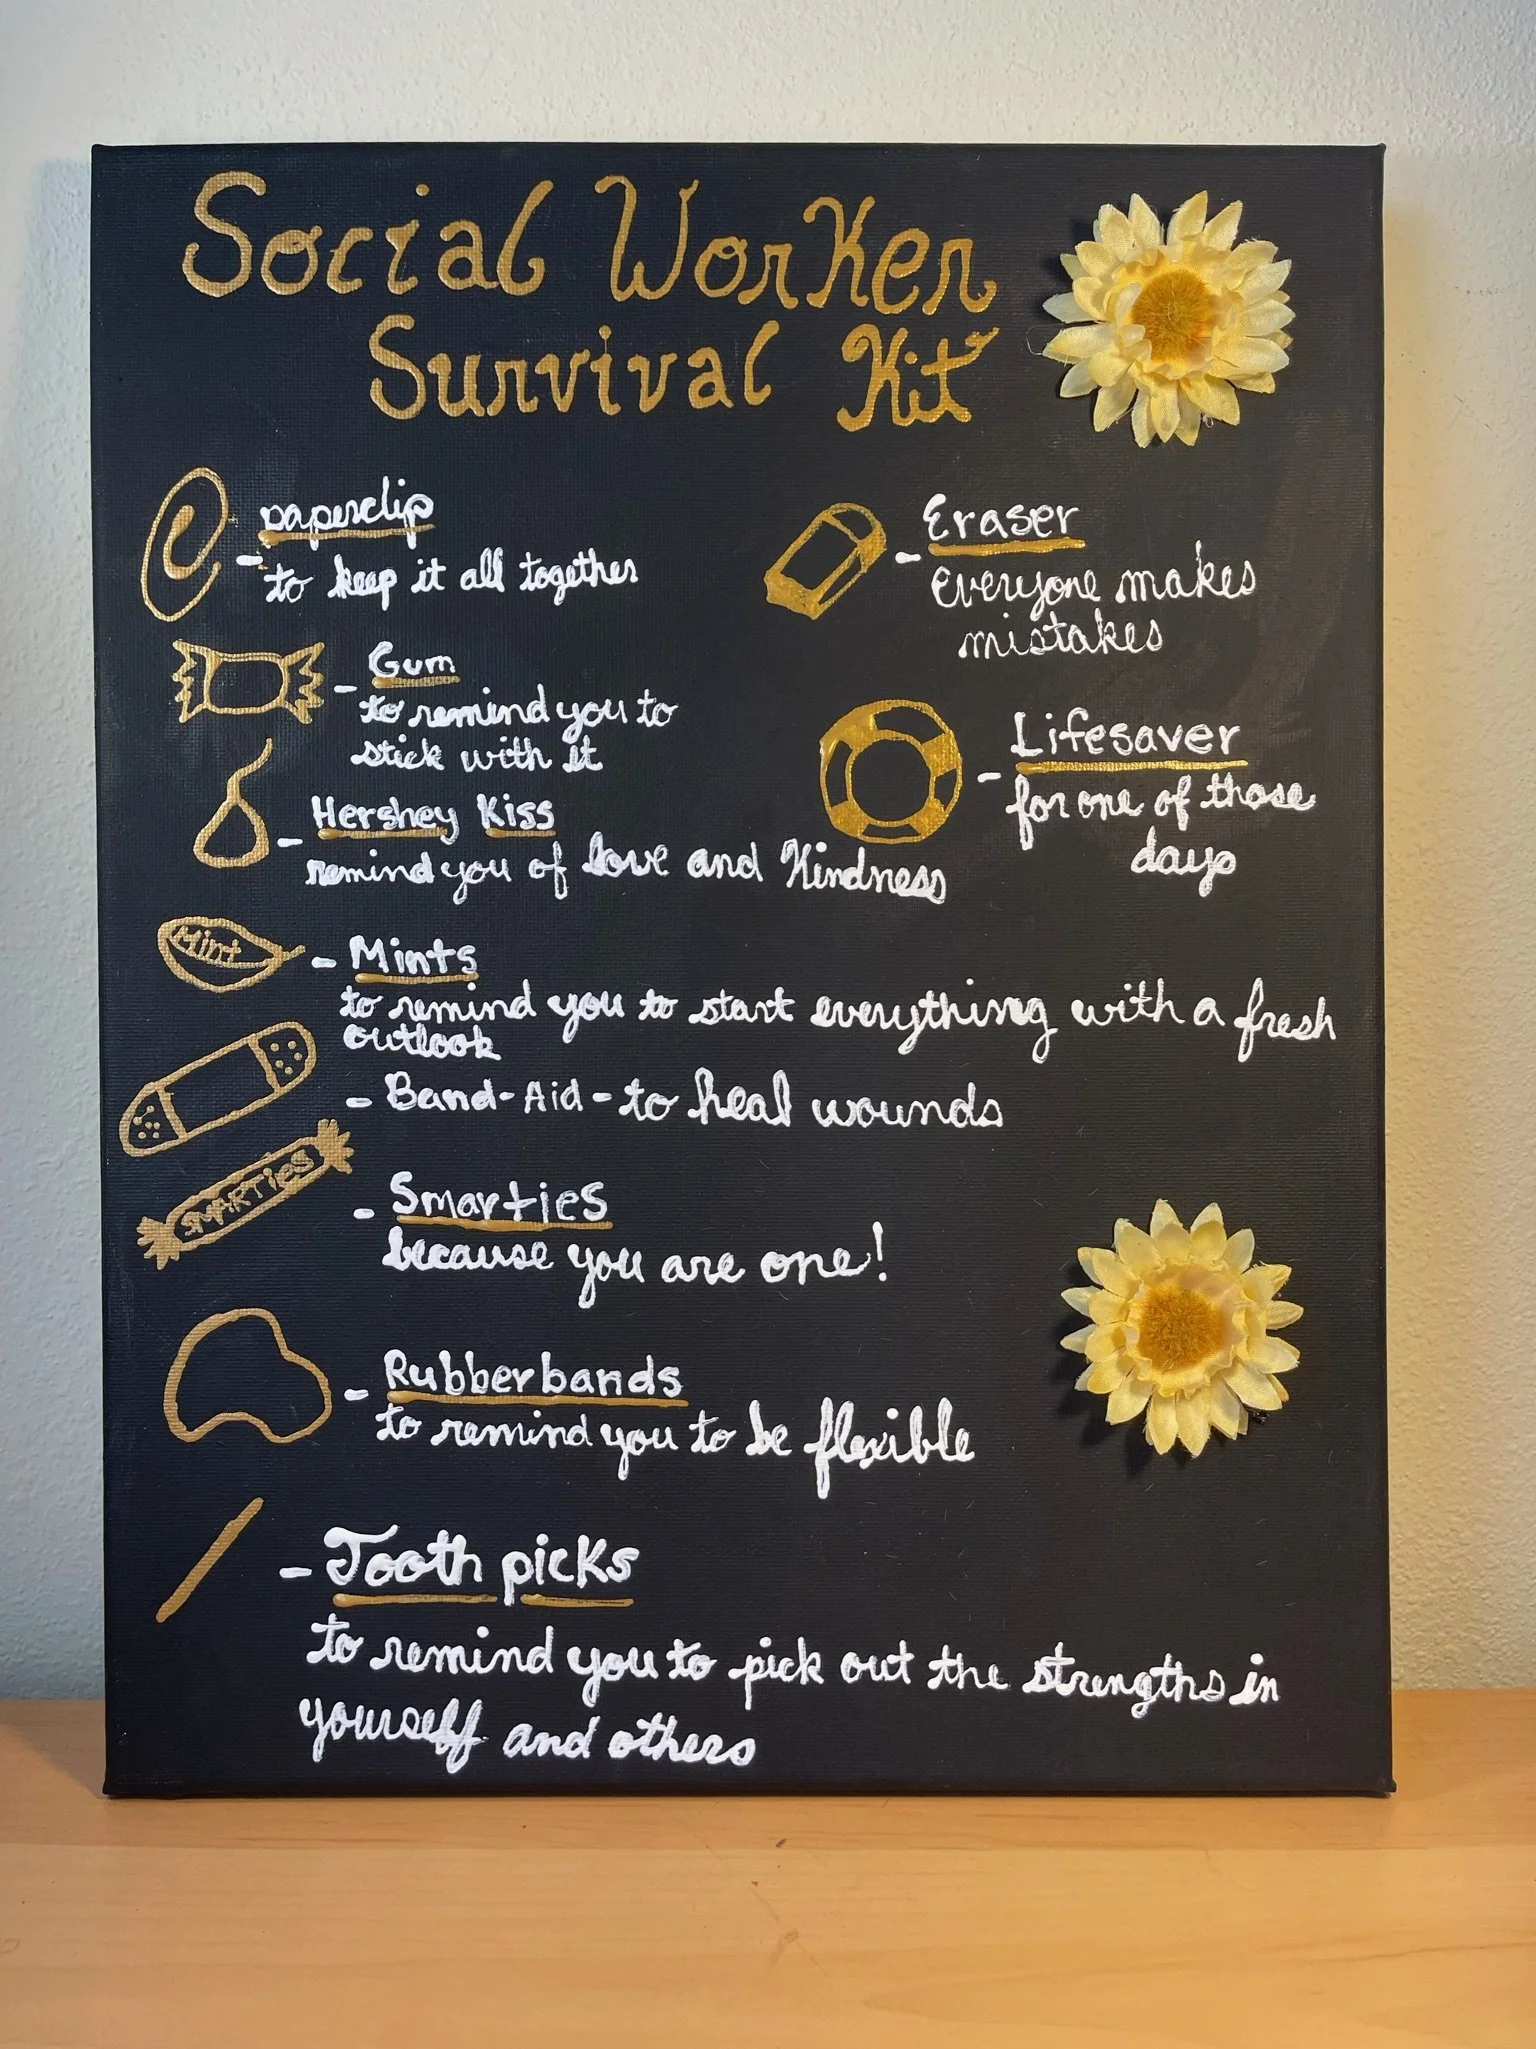 Social Worker
Survival Kit
- paperclip
to keep it all together
- Gum
to remind you to
stick with it
- Hershey Kiss
remind you of love and kindness
Mint
- Mints
to remind you to start everything with a fresh
outlook
- Band-Aid - to heal wounds
SMARTIES
- Smarties
because you are one!
- Rubberbands
to remind you to be flexible
- Tooth picks
to remind you to pick out the strengths in
yourself and others
- Eraser
everyone makes
mistakes
- Lifesaver
for one of those
days